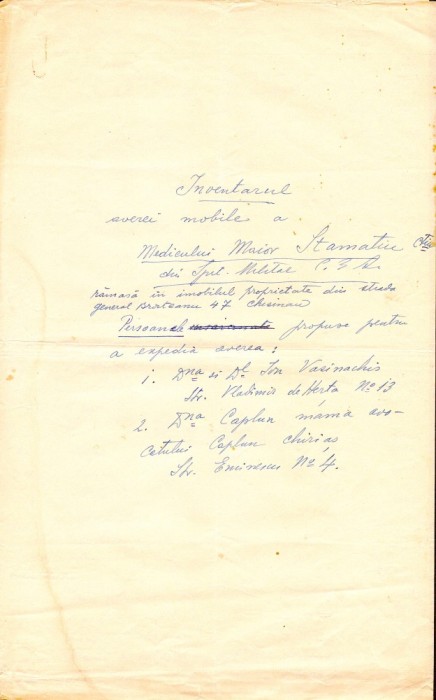 Inventarul
averei mobile a
Medicului Maior Stamatiu Ctin
din Spit. Militar C. F. R.
rămasă în imobilul proprietate din strada
general Brateanu 47 Chisinau
Persoanele propuse pentru
a expedia averea:
1. Dna si Dl. Ion Vasinachis
Str. Vladimir de Herta No 13
2. Dna Caplun mama avo-
catului Caplun chirias
Str. Eminescu No 4.